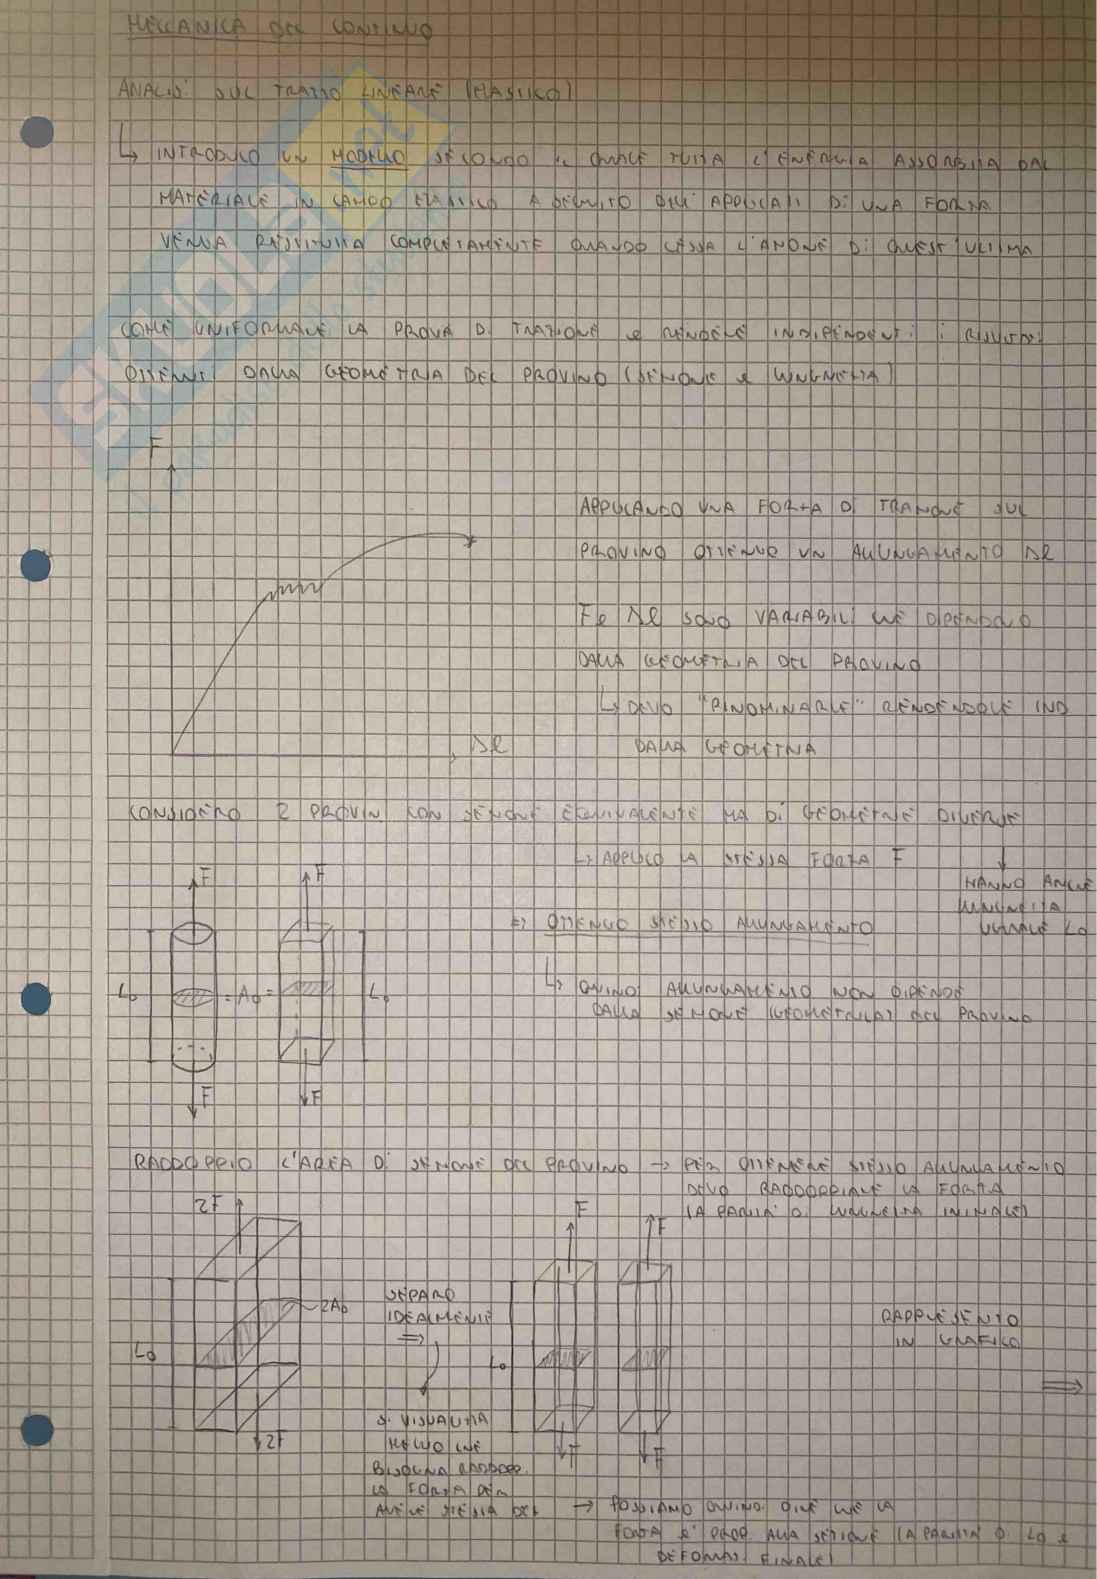 MECCANICA DEL CONTINUO
ANALISI SUL TRATTO LINEARE (ELASTICO)
↳ INTRODUCO UN MODELLO SECONDO IL QUALE TUTTA L'ENERGIA ASSORBITA DAL
MATERIALE IN CAMPO ELASTICO A SEGUITO DELL' APPLICAZ DI UNA FORZA
VENGA RESTITUITA COMPLETAMENTE QUANDO CESSA L'AZIONE DI QUEST'ULTIMA
COME UNIFORMARE LA PROVA DI TRAZIONE e RENDERE INDIPENDENTI I RISULTATI
OTTENUTI DALLA GEOMETRIA DEL PROVINO (SEZIONE e LUNGHEZZA)
F
Δl
APPLICANDO UNA FORZA DI TRAZIONE SUL
PROVINO OTTENGO UN ALLUNGAMENTO Δl
F e Δl SONO VARIABILI CHE DIPENDONO
DALLA GEOMETRIA DEL PROVINO
↳ DEVO "RINOMINARLE" RENDENDOLE IND
DALLA GEOMETRIA
CONSIDERO 2 PROVINI CON SEZIONE EQUIVALENTE MA DI GEOMETRIE DIVERSE
↳ APPLICO LA STESSA FORZA F
↓
HANNO ANCHE
LUNGHEZZA
UGUALE L0
⇒ OTTENGO STESSO ALLUNGAMENTO
↳ QUINDI ALLUNGAMENTO NON DIPENDE
DALLA SEZIONE (GEOMETRICA) DEL PROVINO
F F
L0 = A0 = L0
F F
RADDOPPIO L'AREA DI SEZIONE DEL PROVINO → PER OTTENERE STESSO ALLUNGAMENTO
DEVO RADDOPPIARE LA FORZA
(A PARITA' DI LUNGHEZZA INIZIALE)
2F
2A0
L0
2F
SEPARO
IDEALMENTE
⇒
SI VISUALIZZA
MEGLIO CHE
BISOGNA RADDOPP.
LA FORZA PER
AVERE STESSA DEF
F F
L0
F F
RAPPRESENTO
IN GRAFICO
⇒
→ POSSIAMO QUINDI DIRE CHE LA
FORZA E' PROP. ALLA SEZIONE (A PARITA' DI L0 e
DEFORMAZ FINALE)
SKUOLA.net